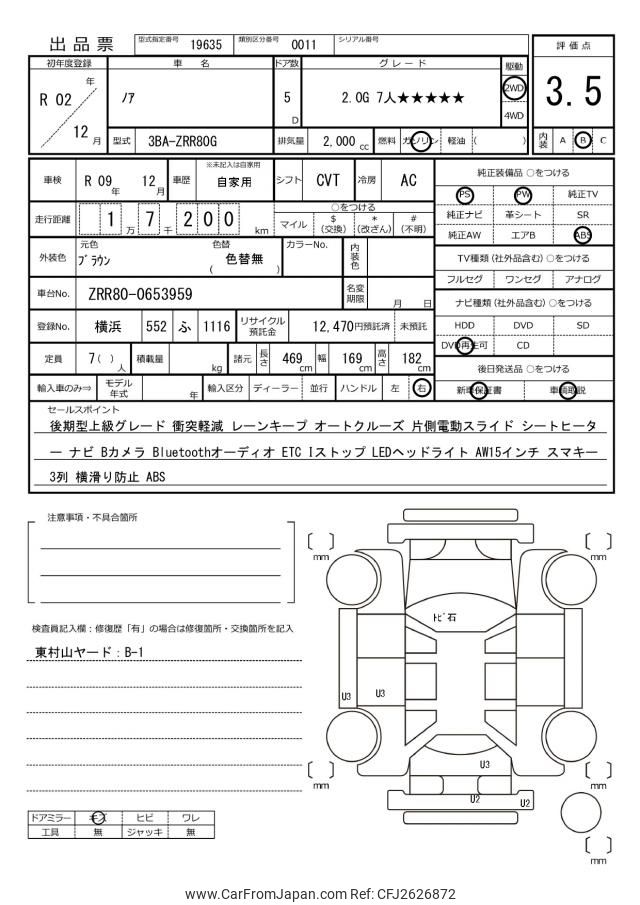 出品票
型式指定番号 19635 類別区分番号 0011 シリアル番号
評価点
3.5
内装 A B C
初年度登録 車名 ドア数 グレード 駆動
R 02 年 12 月
ﾉｱ
5 D
2.0G 7人★★★★★
2WD
4WD
型式 3BA-ZRR80G 排気量 2,000 cc 燃料 ガソリン 軽油 ( )
車検 R 09 年 12 月 車歴 ※未記入は自家用 自家用 シフト CVT 冷房 AC
走行距離 1 万 7 千 2 0 0 km
○をつける
マイル $ (交換) * (改ざん) # (不明)
外装色 元色 ﾌﾞﾗｳﾝ 色替 ( 色替無 ) カラーNo. 内装色
車台No. ZRR80-0653959 名変期限 月 日
登録No. 横浜 552 ふ 1116 リサイクル預託金 12,470円預託済 未預託
定員 7 ( ) 人 積載量 kg 諸元 長さ 469 cm 幅 169 cm 高さ 182 cm
輸入車のみ⇒ モデル年式 年 輸入区分 ディーラー 並行 ハンドル 左 右
純正装備品 ○をつける
PS PW 純正TV
純正ナビ 革シート SR
純正AW エアB ABS
TV種類 (社外品含む) ○をつける
フルセグ ワンセグ アナログ
ナビ種類 (社外品含む) ○をつける
HDD DVD SD
DVD再生可 CD
後日発送品 ○をつける
新車保証書 車輌取説
セールスポイント
後期型上級グレード 衝突軽減 レーンキープ オートクルーズ 片側電動スライド シートヒータ
ー ナビ Bカメラ Bluetoothオーディオ ETC Iストップ LEDヘッドライト AW15インチ スマキー
3列 横滑り防止 ABS
注意事項・不具合箇所
検査員記入欄：修復歴「有」の場合は修復箇所・交換箇所を記入
東村山ヤード：B-1
ドアミラー キズ ヒビ ワレ
工具 無 ジャッキ 無
mm
mm
ﾄﾋﾞ石
U3
U3
U3
U2
U2
mm
mm
mm
www.CarFromJapan.com Ref: CFJ2626872